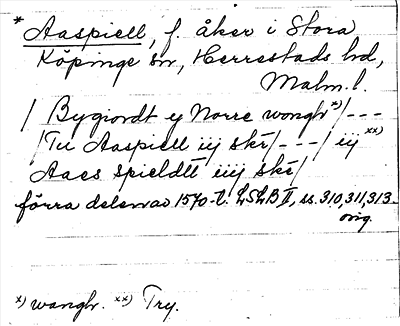 * Aaspiell, f. åker i Stora
Köpinge sn, Herrestads hd,
Malm. l.
/ Bygiordt y Norre wongh x) /---
/Tu Aaspiell iij skr/---/ iij xx)
Aaes spieldtt iiij skr/
förra delen av 1570-t. LSLB II, ss. 310, 311, 313.
orig.
x) wanghr. xx) Try.